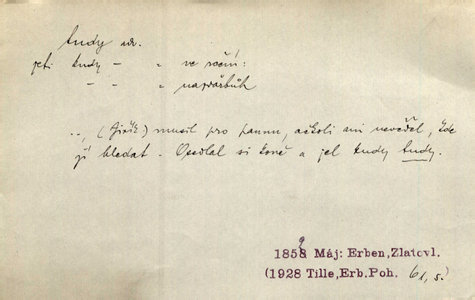 tudy adv.
jeti kudy – " ve rčení:
– " – " nazdařbůh
.., (Jiřík) musil pro pannu, ačkoli ani nevěděl, kde
ji hledat. Osedlal si koně a jel kudy tudy.
1859 Máj: Erben, Zlatovl.
(1928 Tille, Erb. Poh. 61, s.)